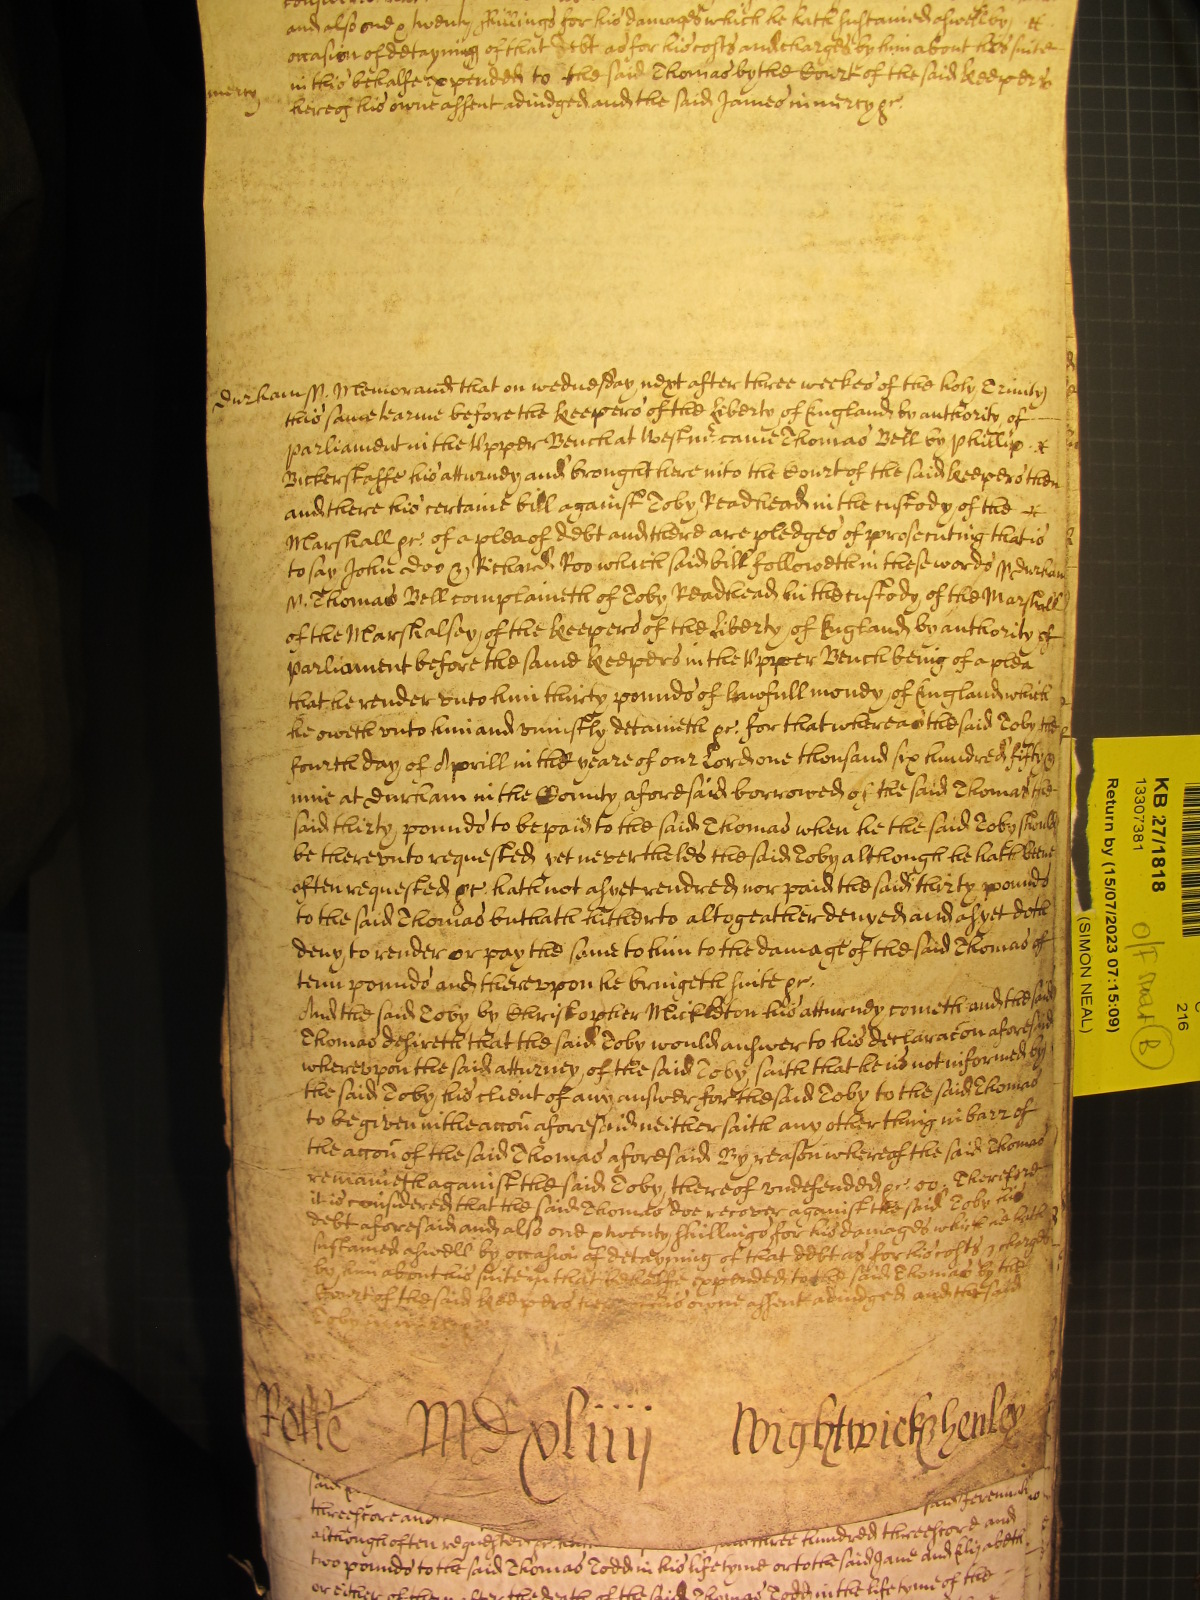 and also one & twenty shillings for his damages which he hath sustained aswell by
occasion of detayning of that debt as for his costs and charges by him about his suite
in this behalfe expended to the said Thomas by the Court of the said Keepers
mercy
hereof his owne assent adiudged and the said James in mercy &c.
Durham ss. Memorand that on wednesday next after three weekes of the holy Trinity
this same tearme before the Keepers of the Liberty of England by authority of
Parliament in the Vpper Bench at Westmr came Thomas Bell by Phillip
Bickerstaffe his atturney and brought here into the Court of the said Keepers then
and there his certaine bill against Toby Readhead in the custody of the
Marshall &c. of a plea of debt and there are pledges of prosecuting that is
to say John Doo & Richard Roo which said bill followeth in these words ss Durham
ss. Thomas Bell complaineth of Toby Readhead in the custody of the Marshall
of the Marshalsey of the Keepers of the Liberty of England by authority of
Parliament before the same Keepers in the Vpper Bench being of a plea
that he render vnto him thirty pounds of lawfull money of England which
he oweth vnto him and vniustly detaineth &c. for that whereas the said Toby the
fourth day of Aprill in the yeare of our Lord one thousand six hundred fifty &
nine at Durham in the County aforesaid borrowed of the said Thomas the
said thirty pounds to be paid to the said Thomas when he the said Toby should
be therevnto requested yet neverthelesse the said Toby although he hath beene
often requested &c. hath not as yet rendred nor paid the said thirty pounds
to the said Thomas but hath hitherto altogeather denyed and as yet doth
deny to render or pay the same to him to the damage of the said Thomas of
tenn pounds and therevpon he bringeth suite &c.
And the said Toby by Christopher Mickleton his atturney cometh and the said
Thomas desireth that the said Toby would answer to his declaracon aforesaid
wherevpon the said atturney of the said Toby saith that he is not informed by
the said Toby his client of any answer for the said Toby to the said Thomas
to be given in the accon aforesaid neither saith any other thing in barr of
the accon of the said Thomas aforesaid By reason whereof the said Thomas
remaineth against the said Toby thereof vndefended &c. Therefore
it is considered that the said Thomas doe recover against the said Toby his
debt aforesaid and also one & twenty shillings for his damages which he hath
sustained aswell by occasion of detayning of that debt as for his costs & charges
by him about his suite in that behalfe expended to the said Thomas by the
Court of the said Keepers here of his owne assent adiudged and the said
Toby in mercy &c.
Rolfe MDxliiij Wightwick & henley
said
threescore and
said Jeremiah
although often requested
three hundred threescore and
two pounds to the said Thomas Todd in his life tyme or to the said Jane and Elizabeth
or either of them after the death of the said Thomas Todd in the life tyme of the
KB 27/1818
13307381
Return by (15/07/2023 07:15:09)
(SIMON NEAL)
216